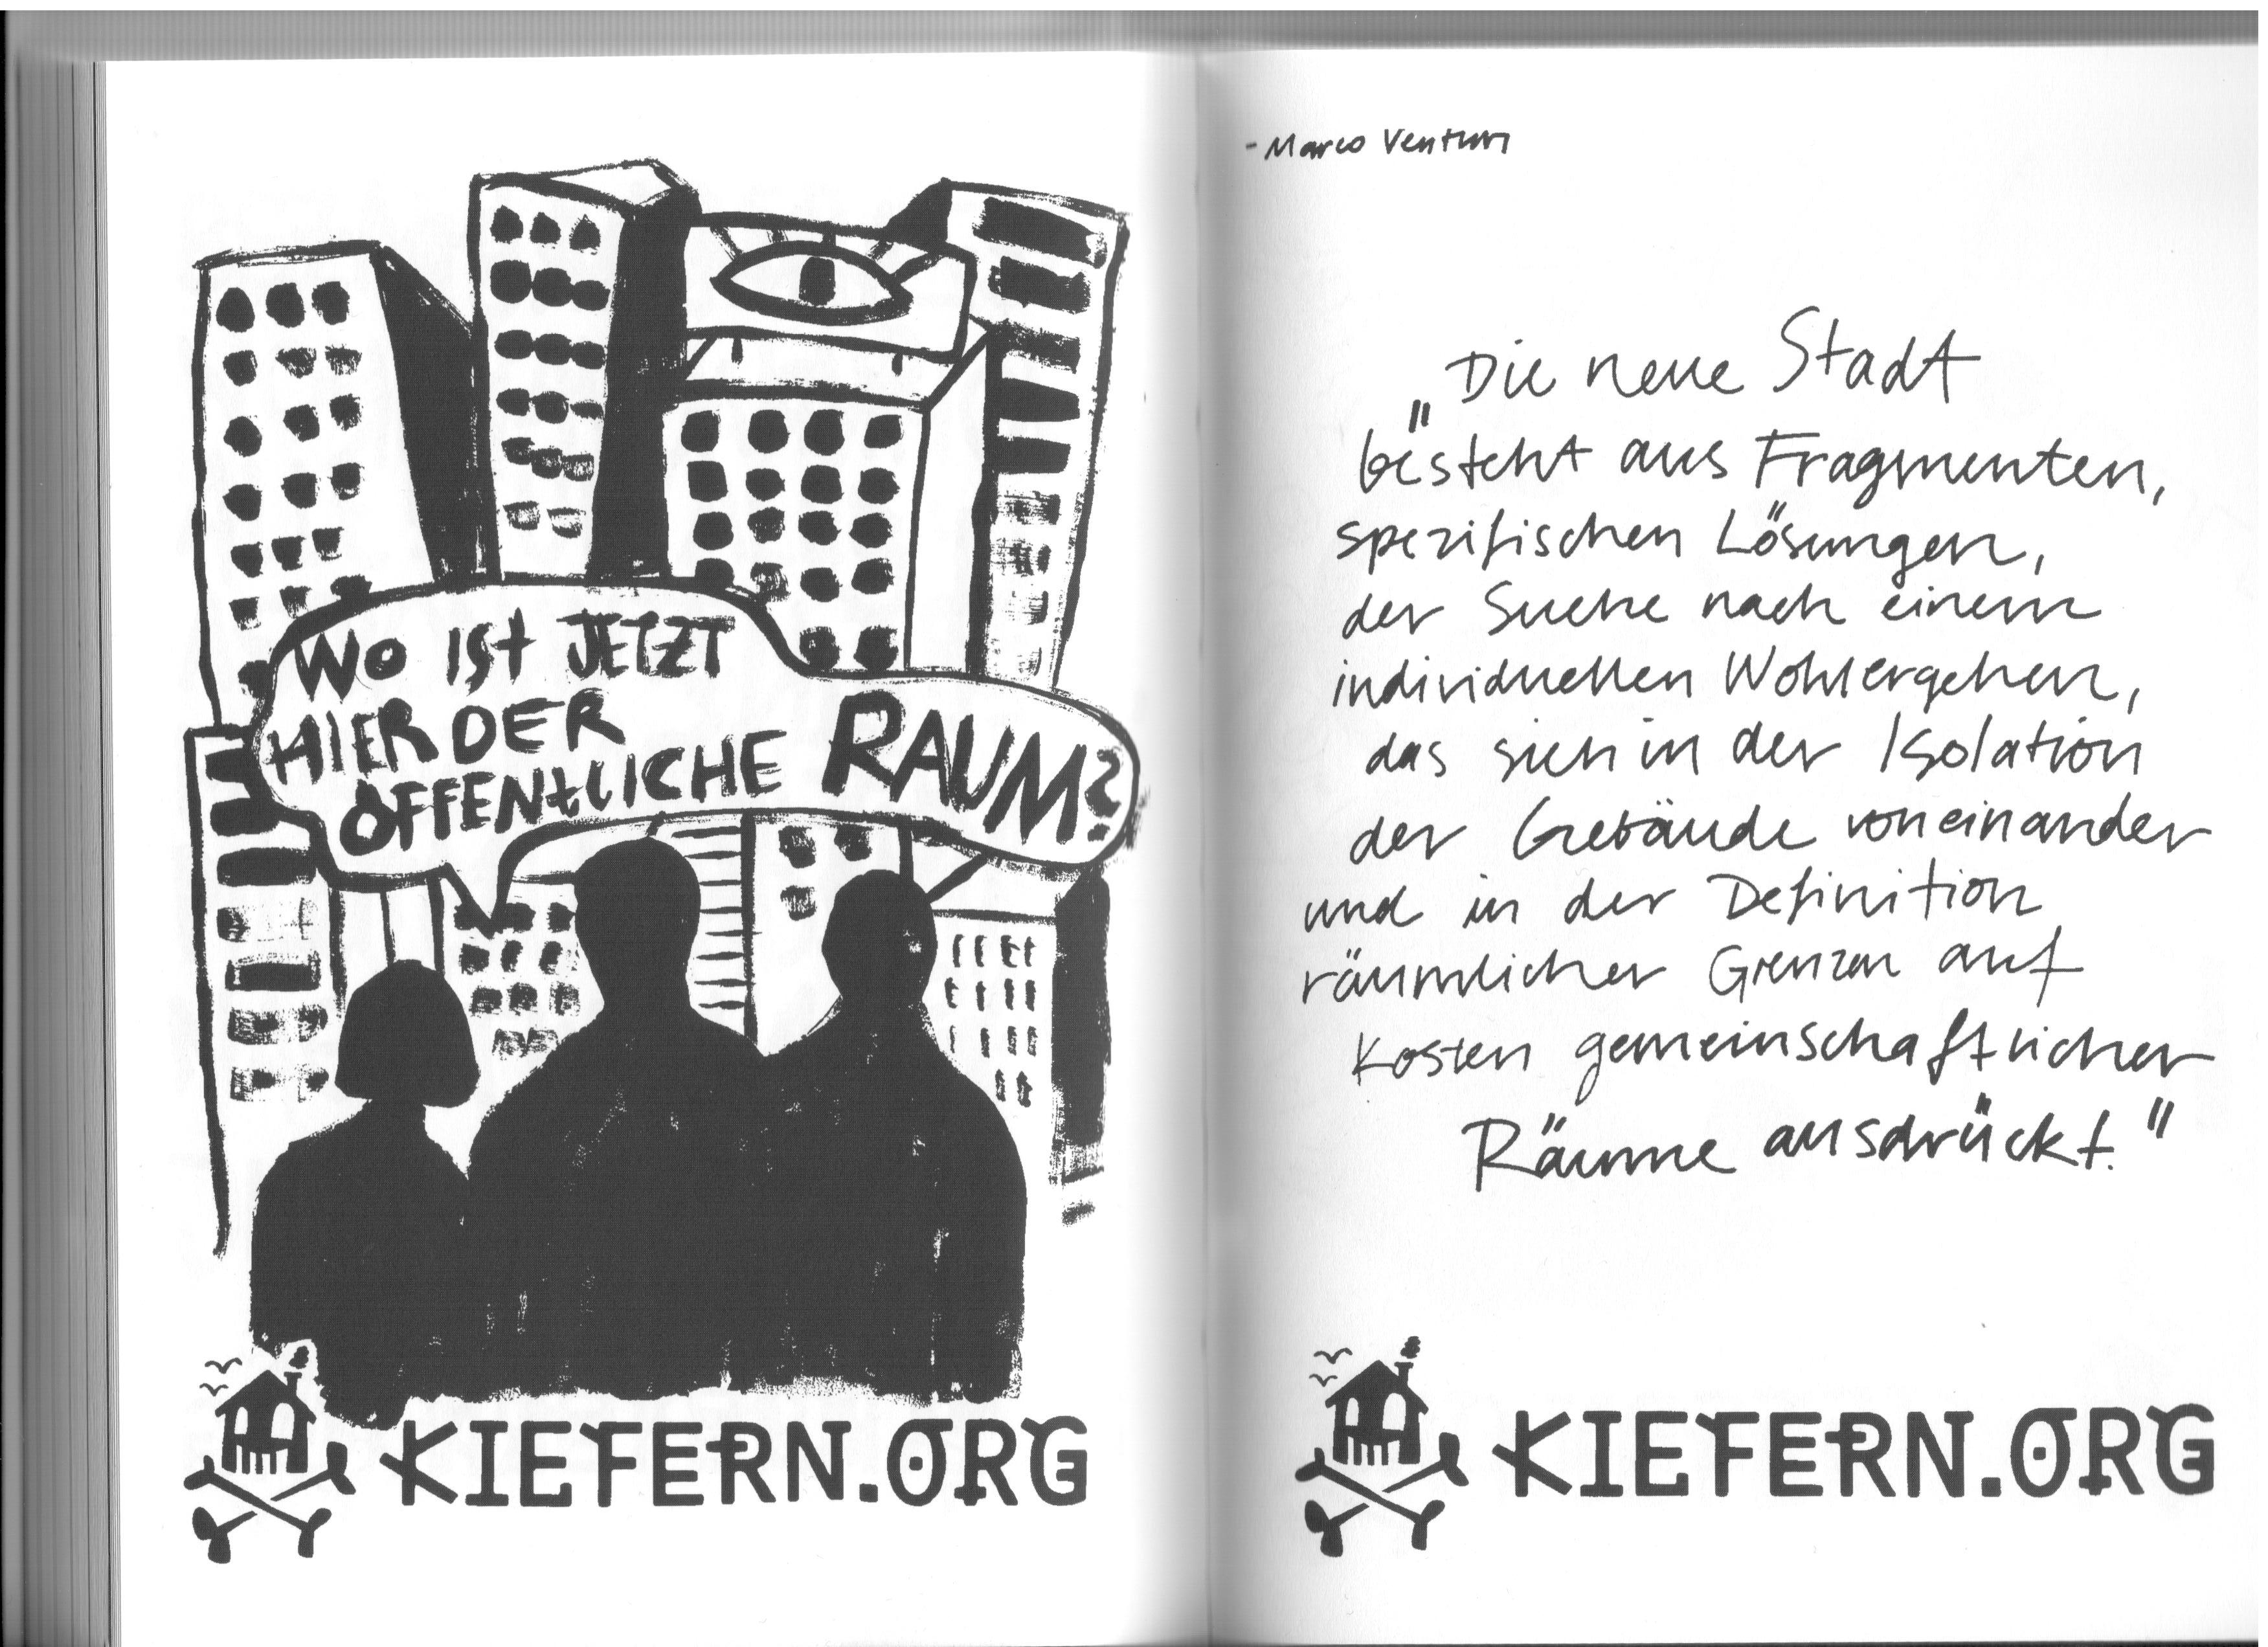 WO IST JETZT
HIER DER
ÖFFENTLICHE RAUM?
KIEFERN.ORG
- Marco Venturi
„Die neue Stadt
besteht aus Fragmenten,
spezifischen Lösungen,
der Suche nach einem
individuellen Wohlergehen,
das sich in der Isolation
der Gebäude voneinander
und in der Definition
räumlicher Grenzen auf
Kosten gemeinschaftlicher
Räume ausdrückt."
KIEFERN.ORG